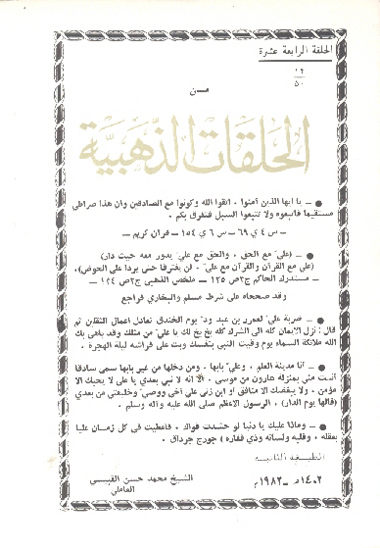 الحلقة الرابعة عشرة
١٤
٥٠
من
الحلقات الذهبية
● ــ يا ايها الذين آمنوا . اتقوا الله وكونوا مع الصادقين وان هذا صراطي
مستقيما فاتبعوه ولا تتبعوا السبل فتفرق بكم .
ــ س ٤ ي ٦٩ ــ س ٦ ي ١٥٤ ــ قرآن كريم ــ
● ــ (علي مع الحق . والحق مع علي يدور معه حيث دار)
(علي مع القرآن والقرآن مع علي . لن يفترقا حتى يردا علي الحوض) .
ــ مستدرك الحاكم ج٣ ص ١٢٥ ــ ملخص الذهبي ج٣ ص ١٢٤ ــ
وقد صححاه على شرط مسلم والبخاري فراجع
● ــ ضربة علي لعمرو بن عبد ود يوم الخندق تعادل اعمال الثقلين ثم
قال : نزل الايمان كله الى الشرك كله بخ بخ لك يا علي من مثلك وقد باهى بك
الله ملائكة السماء يوم وقيت النبي بنفسك وبت على فراشه ليلة الهجرة .
● ــ انا مدينة العلم . وعلي بابها . ومن دخلها من غير بابها سمي سارقا
أنت مني بمنزلة هارون من موسى . الا انه لا نبي بعدي يا علي لا يحبك الا
مؤمن . ولا يبغضك الا منافق او ابن زنى علي أخي ووصي وخليفتي من بعدي
(قالها يوم الدار) . الرسول الاعظم صلى الله عليه وآله وسلم .
● ــ وماذا عليك يا دنيا لو حشدت قواك . فأعطيت في كل زمان عليا
بعقله . وقلبه ولسانه وذي فقاره ) جورج جرداق .
الطبعة الثانية
١٤٠٢هـ ــ ١٩٨٢م
الشيخ محمد حسن القبيسي
العاملي